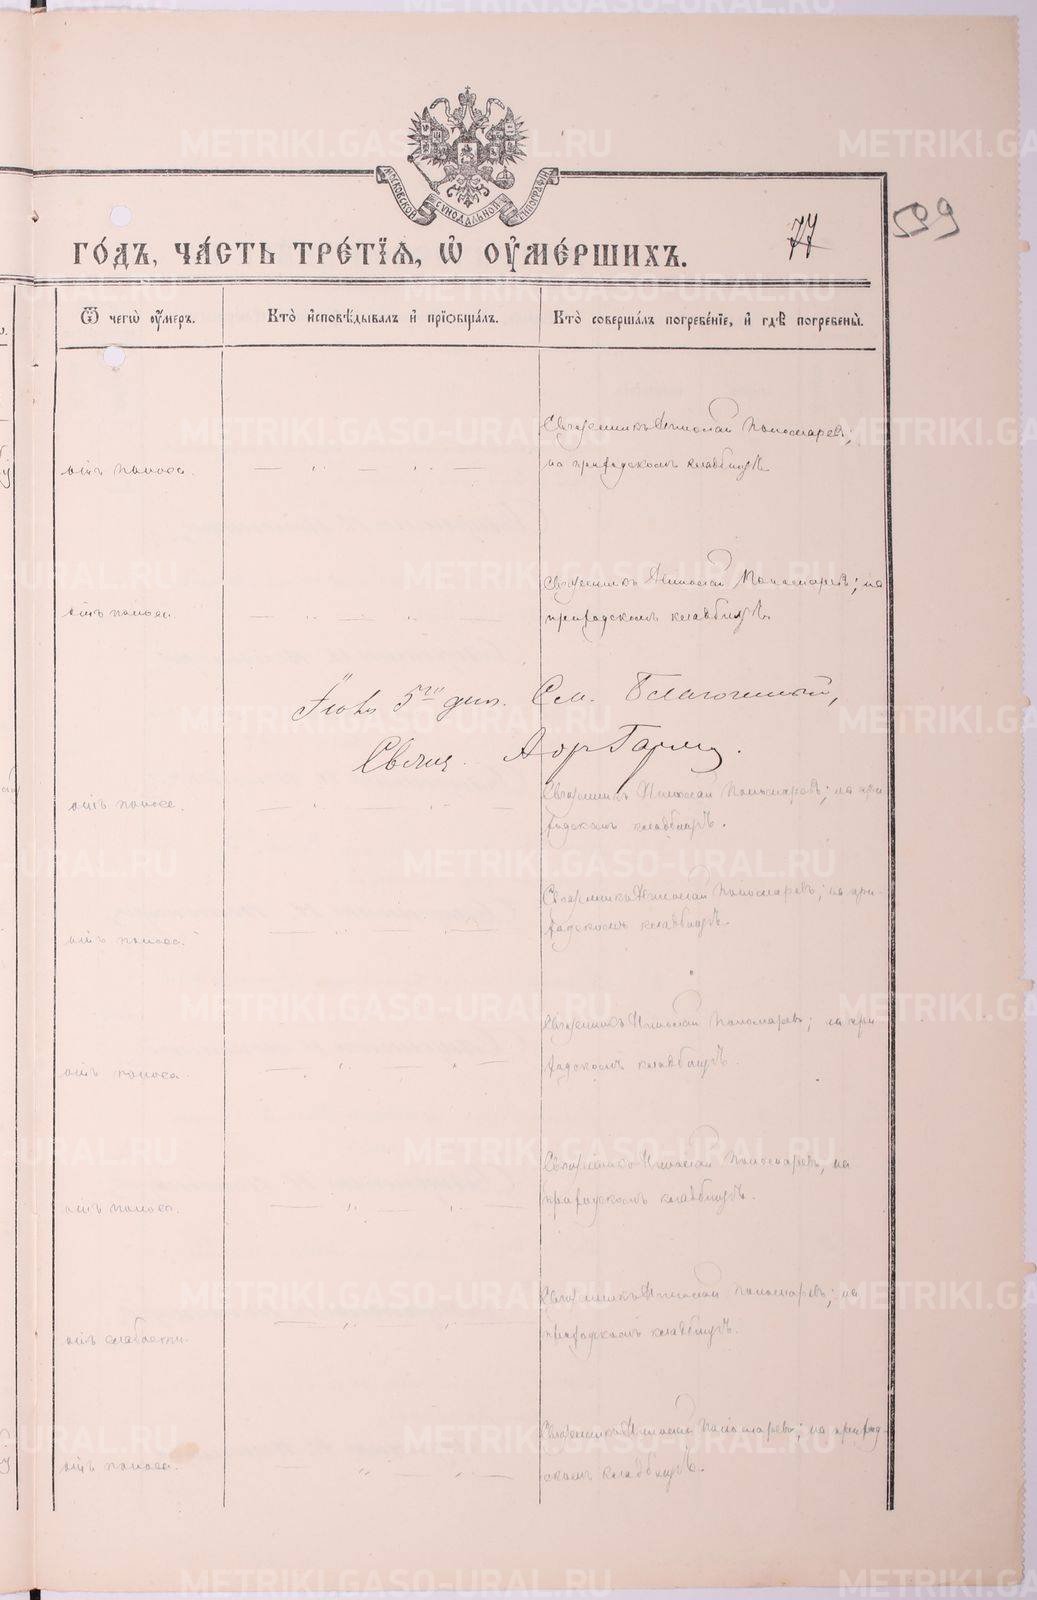 МОСКОВСКОЙ СѴНОДАЛЬНОЙ ТИПОГРАФІИ
ГО́ДЪ, ЧА́СТЬ ТРЕ́ТІѦ, Ѡ҆ ОУ҆МЕ́РШИХЪ.
77
599
Ѿ чегѡ̀ оу҆́меръ.
Кто̀ и҆сповѣ́дывалъ и҆ прїѡбща́лъ.
Кто̀ соверша́лъ погребе́нїе, и҆ гдѣ̀ погребены̀.
отъ поноса.
Священникъ Николай Пономаревъ;
на приходскомъ кладбищѣ.
отъ поноса.
Священникъ Николай Пономаревъ; на
приходскомъ кладбищѣ.
5го дня. См. Благочинный,
Священ.
отъ поноса.
Священникъ Николай Пономаревъ; на при-
ходскомъ кладбищѣ.
отъ поноса.
Священникъ Николай Пономаревъ; на при-
ходскомъ кладбищѣ.
отъ поноса.
Священникъ Николай Пономаревъ; на при-
ходскомъ кладбищѣ.
отъ поноса.
Священникъ Николай Пономаревъ, на
приходскомъ кладбищѣ.
отъ слабости.
Священникъ Николай Пономаревъ; на
приходскомъ кладбищѣ.
отъ поноса.
Священникъ Николай Пономаревъ; на приход-
скомъ кладбищѣ.
METRIKI.GASO-URAL.RU